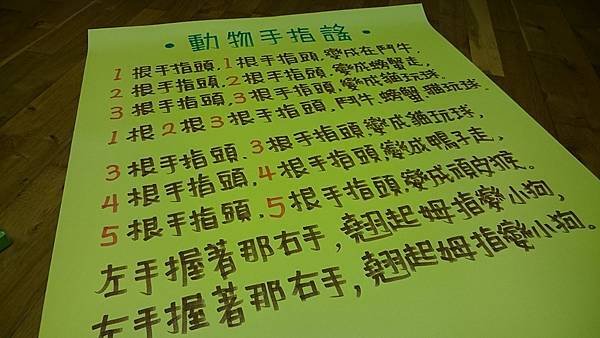 •動物手指謠•
1根手指頭,1根手指頭,變成在鬥牛,
2根手指頭,2根手指頭,變成螃蟹走,
3根手指頭,3根手指頭,變成貓玩球.
1根2根3根手指頭,鬥牛.螃蟹.貓玩球.
3根手指頭.3根手指頭,變成貓玩球,
4根手指頭,4根手指頭,變成鴨子走,
5根手指頭,5根手指頭變成頑皮猴。
左手握著那右手,翹起姆指變小狗,
左手握著那右手,翹起姆指變小狗。